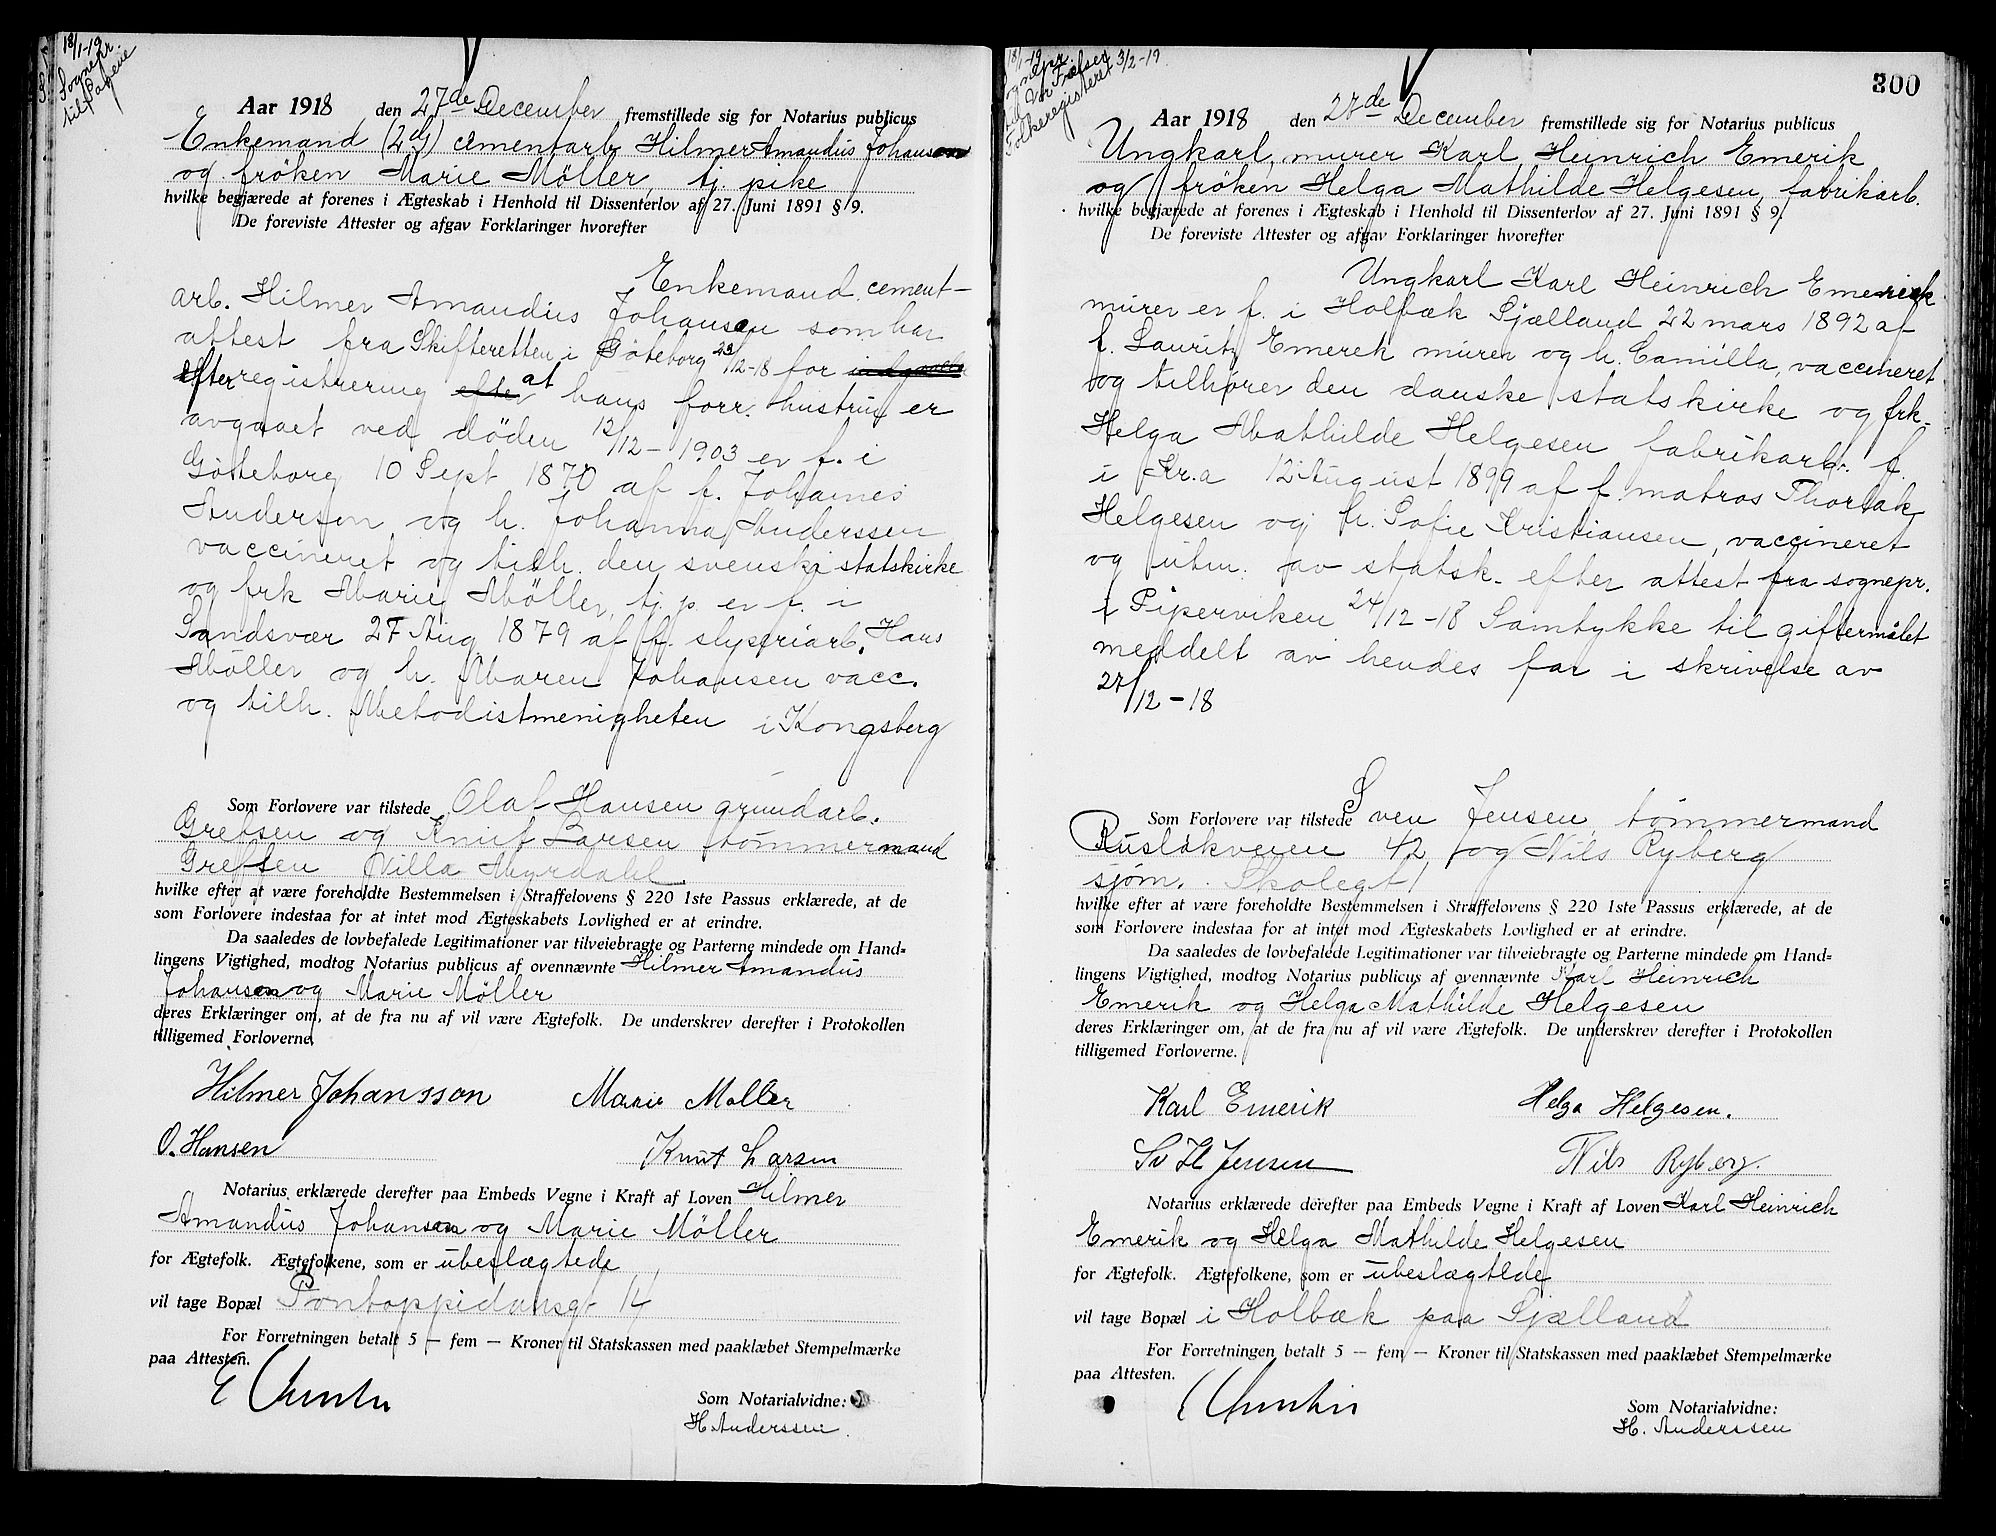 18/1-19
Sognepr.
til Pagene
Aar 1918, den 27de December fremstillede sig for Notarius publicus
Enkemand (2dg) cementarb. Hilmer Amandus Johansen
og fröken Marie Möller, tj. pike
hvilke begjærede at forenes i Ægteskab i Henhold til Dissenterlov af 27. Juni 1891 § 9.
De foreviste Attester og afgav Forklaringer hvorefter
Enkemand cement-
arb. Hilmer Amandus Johansen som har
attest fra Skifteretten i Göteborg 23/12-18 for
efter registrering at hans forr. hustru er
avgaaet ved döden 12/12-1903 er f. i
Göteborg 10 Sept 1870 af f. Johanes
Anderson og h. Johanna Anderssen
vaccineret og tilh. den svenske statskirke
og frk Marie Möller, tj. p. er f. i
Sandsvær 27 Aug 1879 af f. slyperiarb. Hans
Möller og h. Maren Johansen vacc.
og tilh. Metodistmenigheten i Kongsberg
Som Forlovere var tilstede Olaf Hansen grundarb.
Grefsen og Knut Larsen tömmermand
Grefsen Villa Myrdahl
hvilke efter at være foreholdte Bestemmelsen i Straffelovens § 220 1ste Passus erklærede, at de
som Forlovere indestaa for at intet mod Ægteskabets Lovlighed er at erindre.
Da saaledes de lovbefalede Legitimationer var tilveiebragte og Parterne mindede om Hand=
lingens Vigtighed, modtog Notarius publicus af ovennævnte Hilmer Amandus
Johansen og Marie Möller
deres Erklæringer om, at de fra nu af vil være Ægtefolk. De underskrev derefter i Protokollen
tilligemed Forloverne.
Hilmer Johansson Marie Møller
O. Hansen Knut Larsen
Notarius erklærede derefter paa Embeds Vegne i Kraft af Loven Hilmer
Amandus Johansen og Marie Möller
for Ægtefolk. Ægtefolkene, som er ubeslægtede
vil tage Bopæl Pontoppidansgt 14
For Forretningen betalt 5 — fem — Kroner til Statskassen med paaklæbet Stempelmærke
paa Attesten.
Som Notarialvidne:
H. Anderssen.
300
18/1-19
Sognepr.
til Vor Frelser
Folkeregisteret 3/2-19
Aar 1918 den 27de December fremstillede sig for Notarius publicus
Ungkarl, murer Karl Heinrich Emerik
og fröken Helga Mathilde Helgesen, fabrikarb.
hvilke begjærede at forenes i Ægteskab i Henhold til Dissenterlov af 27. Juni 1891 § 9.
De foreviste Attester og afgav Forklaringer hvorefter
Ungkarl Karl Heinrich Emerick
murer er f. i Holbæk Sjælland 22 mars 1892 af
f. Lauritz Emerek murer og h. Camilla, vaccineret
og tilhører den danske statskirke og frk.
Helga Mathilde Helgesen fabrikarb. f.
i Kr.a 12 August 1899 af f. matros Thorlak
Helgesen og h. Sofie Kristiansen, vaccineret
og utm. av statsk. efter attest fra sognepr.
i Piperviken 24/12-18 Samtykke til giftermålet
meddelt av hendes far i skrivelse av
27/12-18
Som Forlovere var tilstede Sven Jensen, tömmermand
Rusløkveien 42, og Nils Ryberg
sjøm. Skolegt
hvilke efter at være foreholdte Bestemmelsen i Straffelovens § 220 1ste Passus erklærede, at de
som Forlovere indestaa for at intet mod Ægteskabets Lovlighed er at erindre.
Da saaledes de lovbefalede Legitimationer var tilveiebragte og Parterne mindede om Hand=
lingens Vigtighed, modtog Notarius publicus af ovennævnte Karl Heinrich
Emerik og Helga Mathilde Helgesen
deres Erklæringer om, at de fra nu af vil være Ægtefolk. De underskrev derefter i Protokollen
tilligemed Forloverne.
Karl Emerik Helga Helgesen.
Sv H Jensen Nils Ryberg.
Notarius erklærede derefter paa Embeds Vegne i Kraft af Loven Karl Heinrich
Emerik og Helga Mathilde Helgesen
for Ægtefolk. Ægtefolkene, som er ubeslægtede
vil tage Bopæl i Holbæk paa Sjælland
For Forretningen betalt 5 — fem — Kroner til Statskassen med paaklæbet Stempelmærke
paa Attesten.
Som Notarialvidne:
H. Anderssen